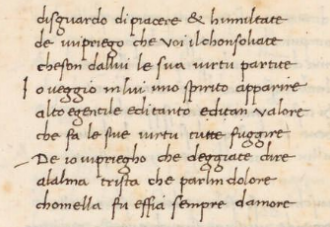 disguardo dipiacere & humiltate
de viipriego che voi ilchonsoliate
cheson dallui le sua virtu partite
I o veggio inlui uno spirito apparire
alto egentile editanto editan valore
che fa le sue virtu tutte fuggire
De io viprieghо che deggiate dire
alalma trista che parlin dolore
chomella fu effia sempre damore